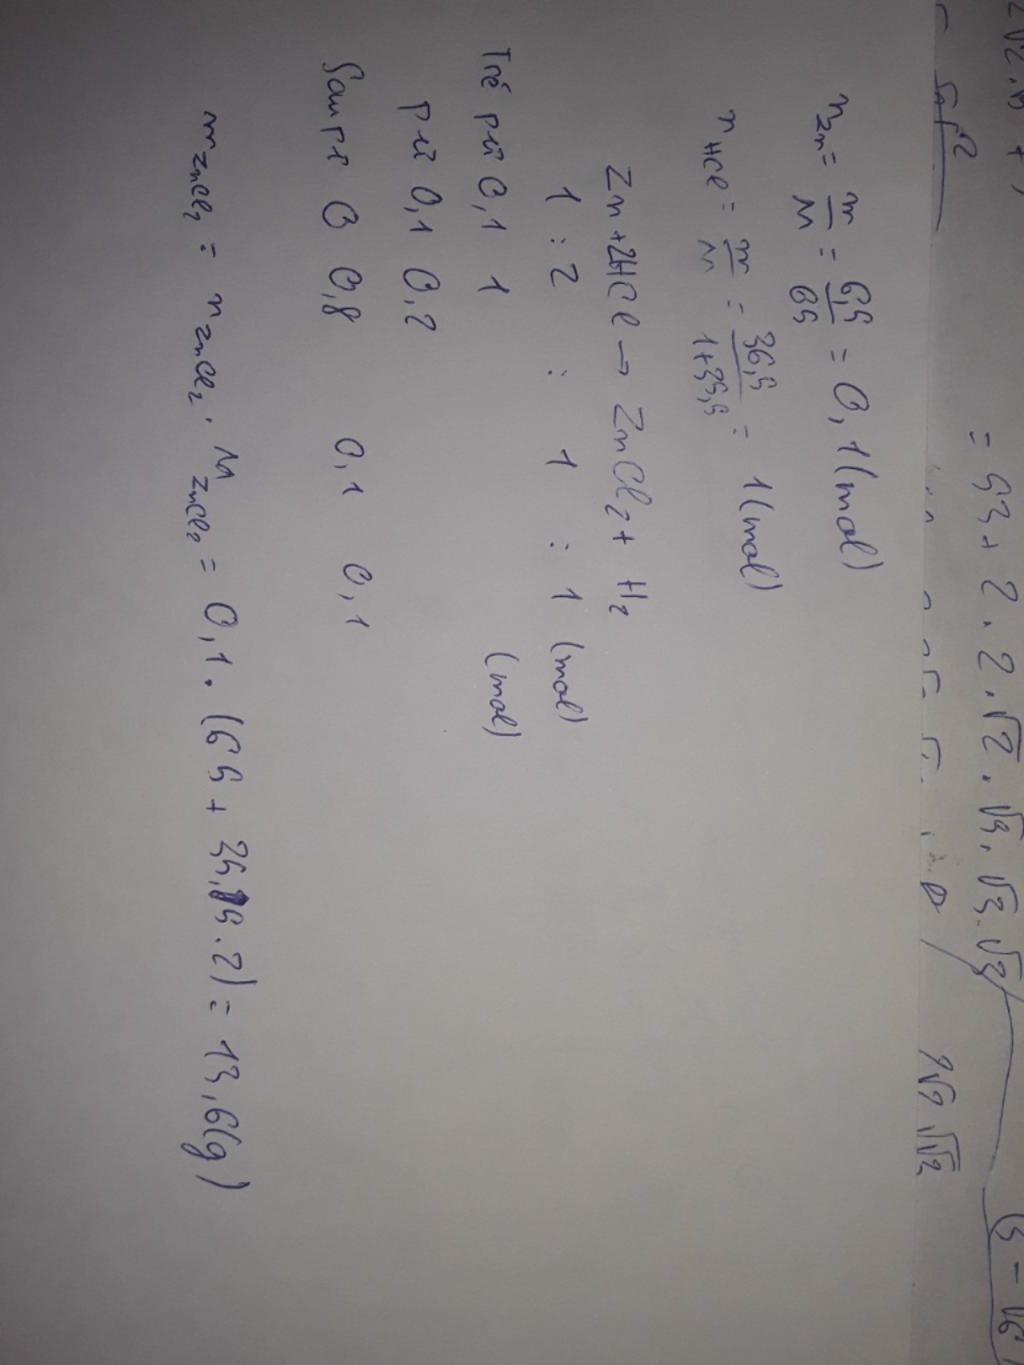 = 53 + 2 . 2 . √2 . √3 . √3 . √3
n Zn = m/M = 6,5/65 = 0,1 (mol)
n HCl = m/M = 36,5/1+35,5 = 1 (mol)
Zn + 2HCl → ZnCl₂ + H₂
1 : 2 : 1 : 1 (mol)
pứ 0,1 1 (mol)
pứ 0,1 0,2
Sau pứ 0 0,8 0,1 0,1
m ZnCl₂ = n ZnCl₂ . M ZnCl₂ = 0,1 . (65 + 35,5 . 2) = 13,6 (g)